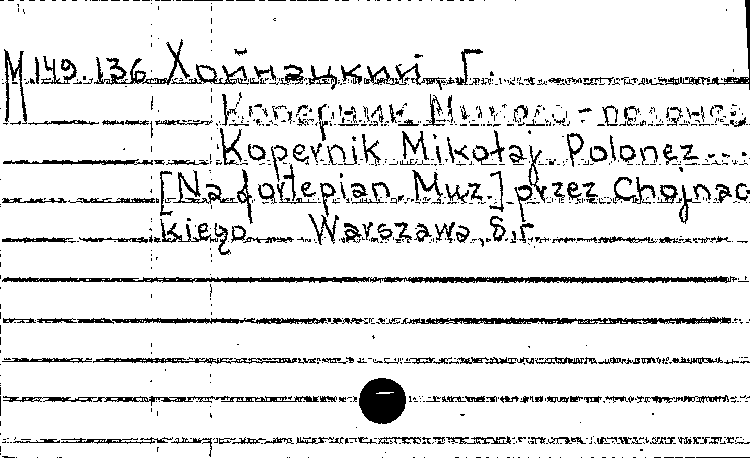 М 149.136 Хойнацкий, Г.
Коперник Миколо - полонез
Kopernik Mikołaj. Polonez...
[Na fortepian. Muz.] przez Chojnac
kiego Warszawa, б.г.